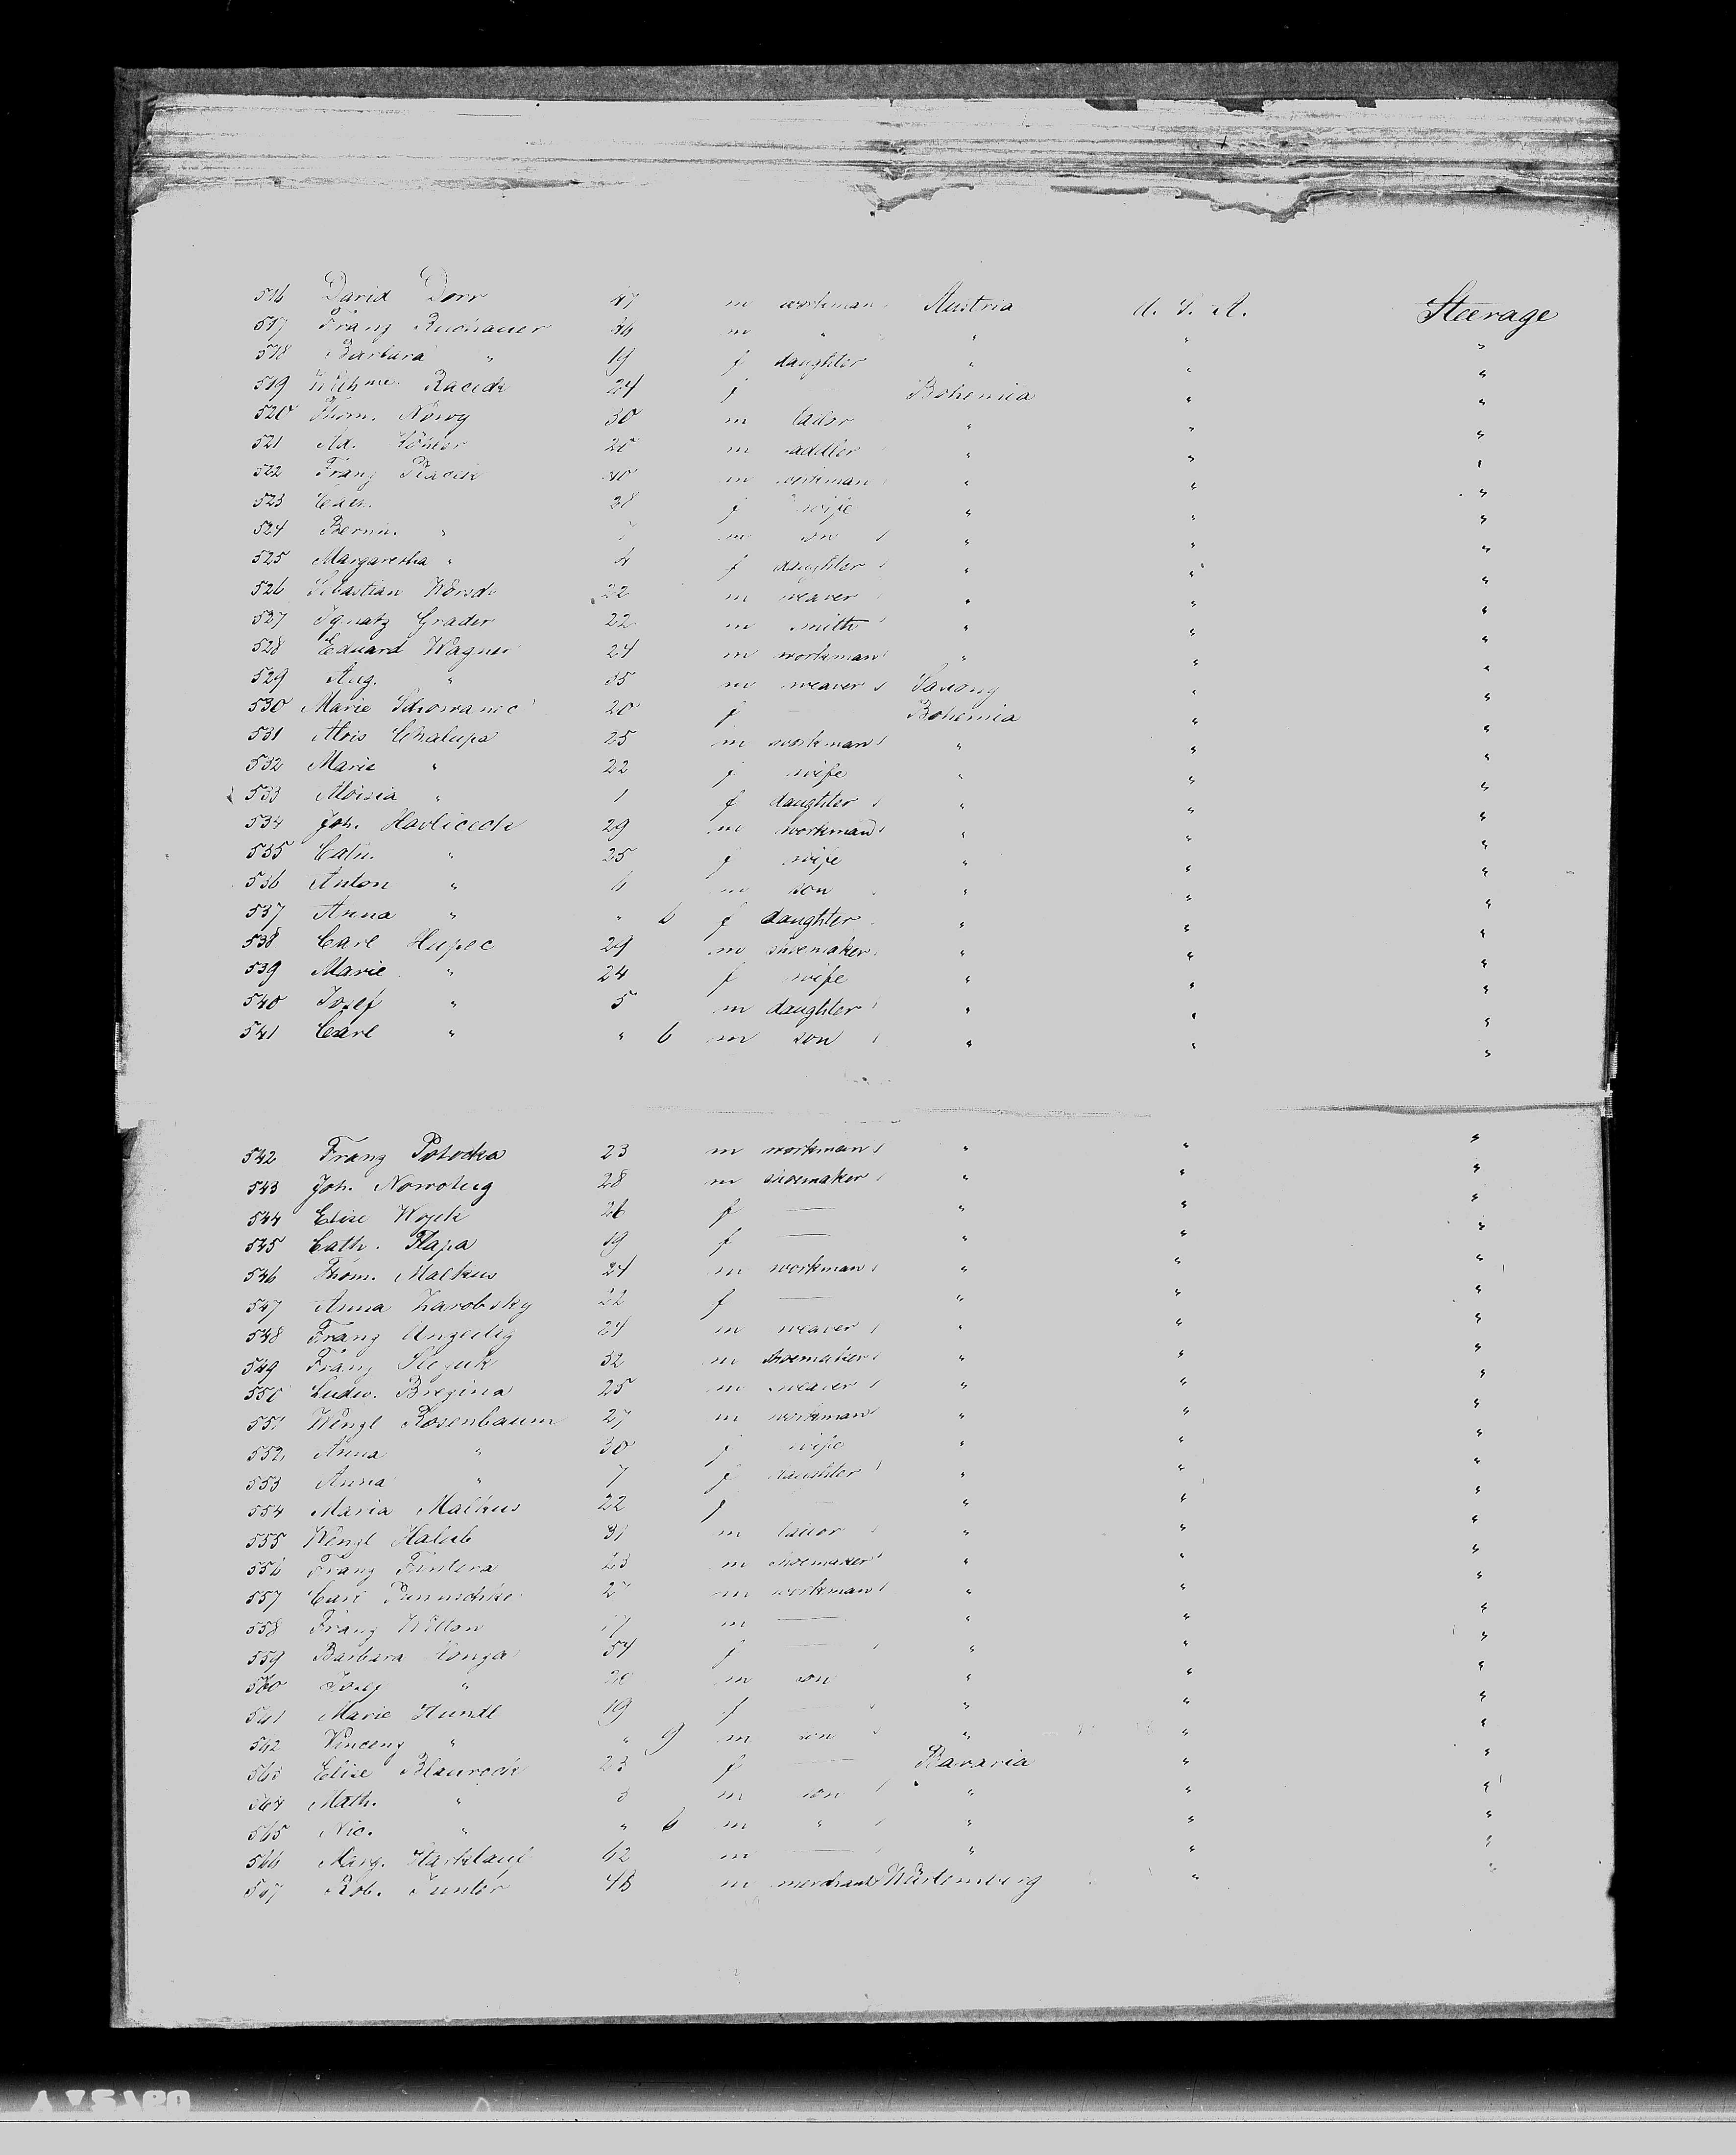 516 David Dorr 47 m workman Austria U. S. A. Steerage
517 Franz Buchauer 46 m " " " "
518 Barbara " 19 f daughter " " "
519 Racek 24 f Bohemia " "
520 Thom. Nowy 30 m tailor " " "
521 Ad. m " " "
522 Franz Racek 40 m workman " " "
523 Cath. 28 f wife " " "
524 " 7 m son " " "
525 Margaretha " 4 f daughter " " "
526 Sebastian 22 m weaver " " "
527 Ignatz Grader 22 m smith " " "
528 Eduard Wagner 24 m workman " " "
529 Aug. " 35 m weaver Saxony " "
530 Marie 20 f — Bohemia " "
531 Alois Chalupa 25 m workman " " "
532 Marie " 22 f wife " " "
533 Aloisia " 1 f daughter " " "
534 Joh. Havliceck 29 m workman " " "
535 Cath. " 25 f wife " " "
536 Anton " 6 m son " " "
537 Anna " " 6 f daughter " " "
538 Carl Hupec 29 m shoemaker " " "
539 Marie " 24 f wife " " "
540 Josef " 5 m daughter " " "
541 Carl " " 6 m son " " "
542 Franz Potocka 23 m workman " " "
543 Joh. Nowotny 28 m shoemaker " " "
544 Elise Wojek 26 f — " " "
545 Cath. Hapa 19 f — " " "
546 Thom. Malkus 24 m workman " " "
547 Anna Zarobsky 22 f — " " "
548 Franz 24 m weaver " " "
549 Franz 32 m shoemaker " " "
550 Ludw. Bregina 25 m weaver " " "
551 Wenzl Rosenbaum 27 m workman " " "
552 Anna " 30 f wife " " "
553 Anna " 7 f daughter " " "
554 Maria Malkus 22 f — " " "
555 Wenzl Halub 31 m tailor " " "
556 Franz Fintera 23 m shoemaker " " "
557 Carl 27 m workman " " "
558 Franz 17 m — " " "
559 Barbara Honza 54 f — " " "
560 Josef " m son " " "
561 Marie Hundl 19 f — " " "
562 Vincenz " " 9 m son " " "
563 Elise Blaurock 23 f — Bavaria " "
564 Math. " 3 m son " " "
565 Nic. " " 6 m " " " "
566 Marg. 62 m — " " "
567 Rob. 48 m merchant Würtemberg " "